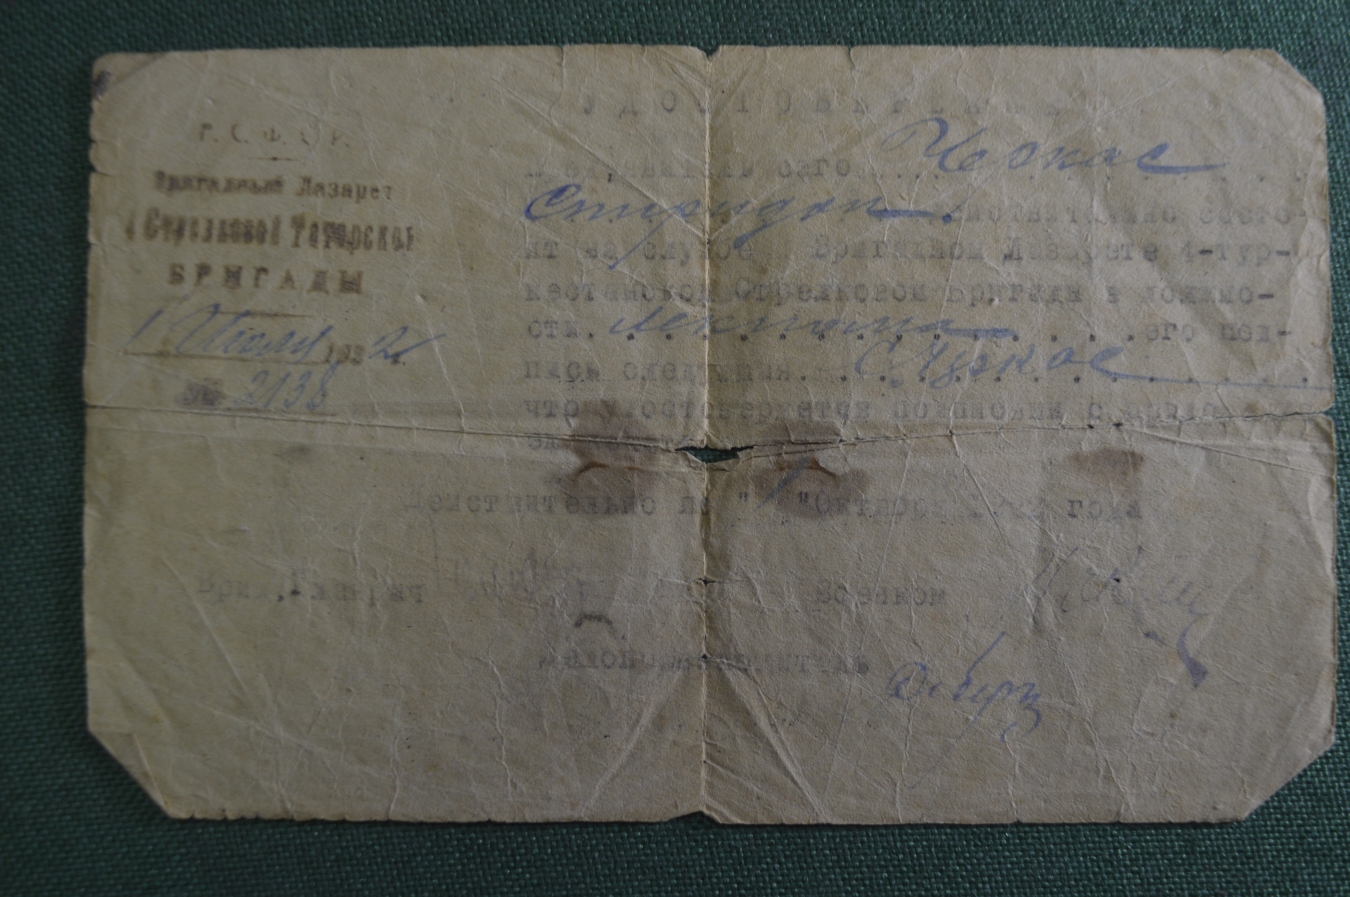 Р. С. Ф. С. Р.
Бригадный Лазарет
Стрелковой
БРИГАДЫ
1 Июля 1922 г.
№ 2138
УДОСТОВЕРЕНИЕ
сего Черкас
Спиридон действительно состо-
ит на службе Бригадном Лазарете 4-тур-
кестанской Стрелковой Бригады в должно-
сти лекпома его под-
пись следующая С Черкас
что удостоверяется подписями с
Действительно по "1" Октября года
Военком
Делопроизводитель